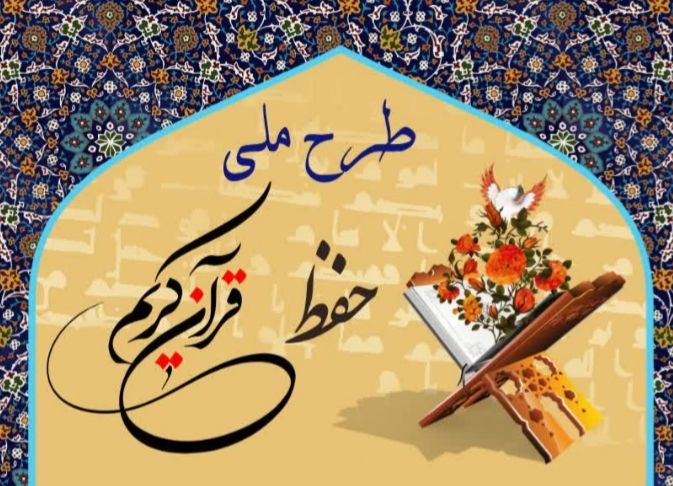 طرح ملی
حفظ قرآن کریم